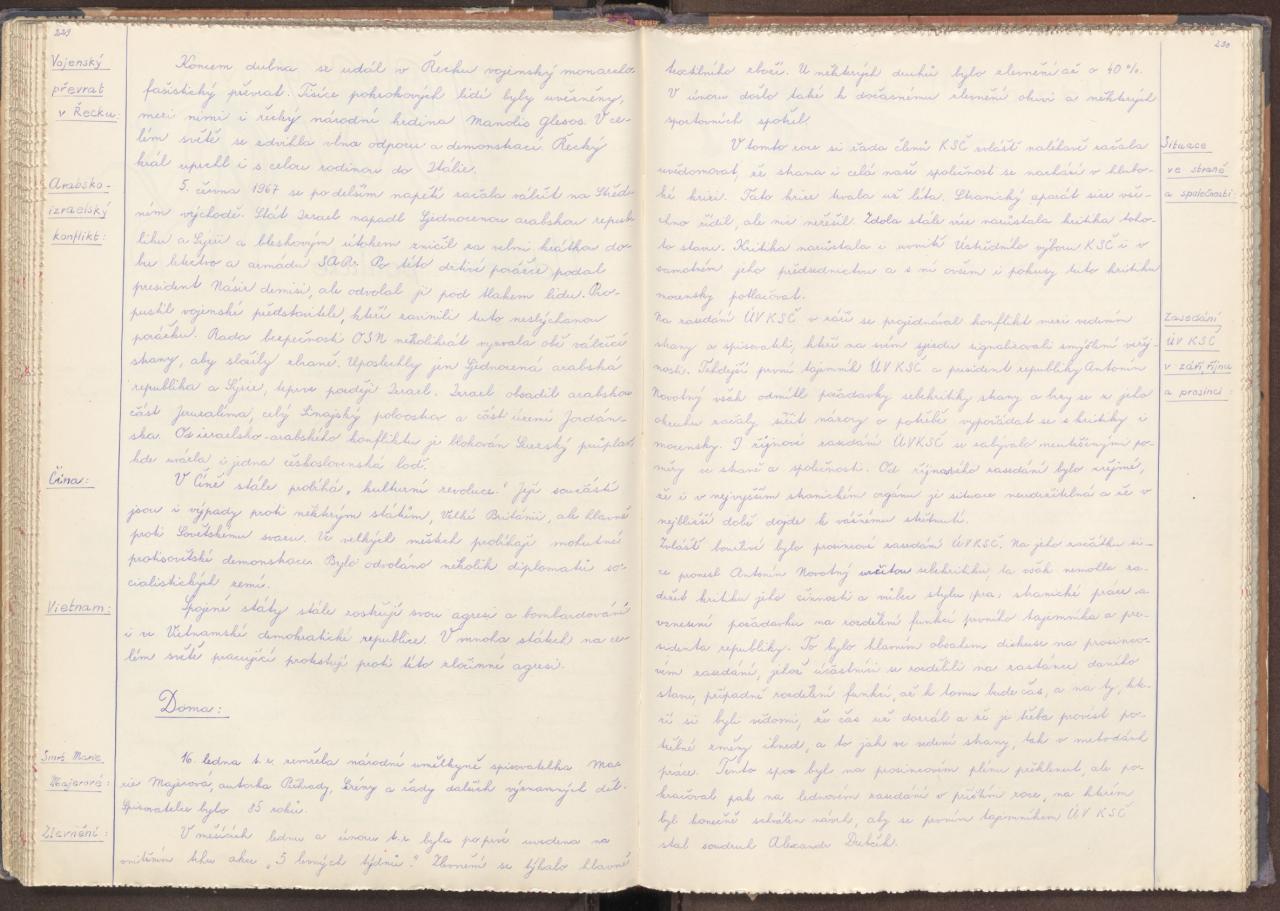 229
Vojenský
převrat
v Řecku:
Koncem dubna se udál v Řecku vojenský monarcho-
fašistický převrat. Tisíce pokrokových lidí byly uvězněny,
mezi nimi i řecký národní hrdina Manolis Glesos. V ce-
lém světě se zdvihla vlna odporu a demonstrací. Řecký
král uprchl i s celou rodinou do Itálie.
Arabsko-
izraelský
konflikt:
5. června 1967 se po delším napětí začala válčit na Střed-
ním východě. Stát Izrael napadl Sjednocenou arabskou repub-
liku a Sýrii a bleskovým útokem zničil za velmi krátkou do-
bu letectvo a armádu SAR. Po této drtivé porážce podal
president Násir demisi, ale odvolal ji pod tlakem lidu. Pro-
pustil vojenské představitele, kteří zavinili tuto neslýchanou
porážku. Rada bezpečnosti OSN několikrát vyzvala obě válčící
strany, aby složily zbraně. Uposlechly jen Sjednocená arabská
republika a Sýrie, teprve později Izrael. Izrael obsadil arabskou
část Jeruzaléma, celý Sinajský poloostrov a část území Jordán-
ska. Od izraelsko-arabského konfliktu je blokován Suezský průplav,
kde uvázla i jedna československá loď.
Čína:
V Číně stále probíhá „kulturní revoluce." Její součástí
jsou i výpady proti některým státům, Velké Británii, ale hlavně
proti Sovětskému svazu. Ve velkých městech probíhají mohutné
protisovětské demonstrace. Bylo odvoláno několik diplomatů so-
cialistických zemí.
Vietnam:
Spojené státy stále rozšiřují svou agresi a bombardování
i ve Vietnamské demokratické republice. V mnoha státech na ce-
lém světě pracující protestují proti této zločinné agresi.
Doma:
Smrt Marie
Majerové:
16. ledna t.r. zemřela národní umělkyně spisovatelka Ma-
rie Majerová, autorka Přehrady, Sirény a řady dalších významných děl.
Spisovatelce bylo 85 roků.
Zlevnění:
V měsících lednu a únoru t.r. byla poprvé uvedena na
vnitřním trhu akce „5 levných týdnů." Zlevnění se týkalo hlavně
230
textilního zboží. U některých druhů bylo zlevnění až o 40%.
V únoru došlo také k dočasnému zlevnění obuvi a některých
sportovních spotřeb.
Situace
ve straně
a společnosti:
V tomto roce si řada členů KSČ zvlášť naléhavě začala
uvědomovat, že strana i celá naše společnost se nachází v hlubo-
ké krizi. Tato krize trvala už léta. Stranický aparát sice vše-
chno řídil, ale nic neřešil. Zdola stále více narůstala kritika toho-
to stavu. Kritika narůstala i uvnitř Ústředního výboru KSČ i v
samotném jeho předsednictvu a s ní ovšem i pokusy tuto kritiku
mocensky potlačovat.
Zasedání
ÚV KSČ
v září, říjnu
a prosinci:
Na zasedání ÚV KSČ v září se projednával konflikt mezi vedením
strany a spisovateli, kteří na svém sjezdu signalizovali smýšlení veřej-
nosti. Tehdejší první tajemník ÚV KSČ a president republiky Antonín
Novotný však odmítl požadavky sebekritiky strany a hry se z jeho
okruhu začaly šířit názory o potřebě vypořádat se s kritiky i
mocensky. I říjnové zasedání ÚV KSČ se zabývalo neutěšenými po-
měry ve straně a společnosti. Od říjnového zasedání bylo zřejmé,
že i v nejvyšším stranickém orgánu je situace neudržitelná a že v
nejbližší době dojde k vážnému střetnutí.
Zvláště bouřlivé bylo prosincové zasedání ÚV KSČ. Na jeho začátku si-
ce pronesl Antonín Novotný určitou sebekritiku, ta však nemohla za-
držet kritiku jeho činnosti a vůbec stylu stranické práce a
vznesení požadavku na rozdělení funkcí prvního tajemníka a pre-
sidenta republiky. To bylo hlavním obsahem diskuse na prosinco-
vém zasedání, jehož účastníci se rozdělili na zastánce daného
stavu, případně rozdělení funkcí, až k tomu bude čas, a na ty, kte-
ří si byli vědomi, že čas už dozrál a že je třeba provést po-
třebné změny ihned, a to jak ve vedení strany, tak v metodách
práce. Tento spor byl na prosincovém plénu přerušen, ale po-
kračoval pak na lednovém zasedání v příštím roce, na kterém
byl konečně schválen návrh, aby se prvním tajemníkem ÚV KSČ
stal soudruh Alexander Dubček.